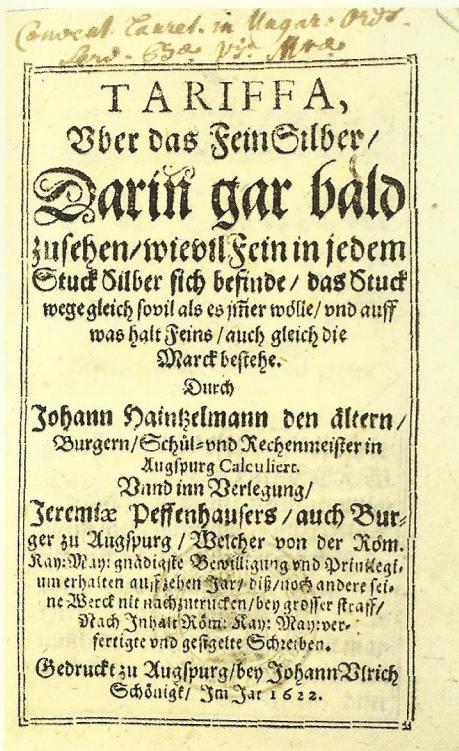 Convent Lauret. in Ungar. Ords.
TARIFFA,
Vber das Fein Silber/
Dariñ gar bald
zusehen/wievil Fein in jedem
Stuck Silber sich befinde/ das Stuck
wege gleich sovil als es jm̃er wölle/ vnd auff
was halt Feins/auch gleich die
Marck bestehe.
Durch
Johann Haintzelmann den ältern/
Burgern/Schůl-vnd Rechenmeister in
Augspurg Calculiert.
Vnnd inn Verlegung/
Jeremiæ Peffenhausers/auch Bur-
ger zu Augspurg/Welcher von der Röm.
Kay: May: gnädigste Bewilligung vnd Priuilegi-
um erhalten auff zehen Jar/ diß/noch andere sei-
ne Werck nit nachzutrucken/bey grosser straff/
Nach Inhalt Röm: Kay: May: ver-
fertigte vnd gesigelte Schreiben.
Gedruckt zu Augspurg/bey Johann Vlrich
Schönigk/ Im Jar 1622.